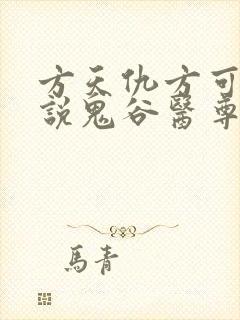 方天仇方可
說鬼谷醫尊
馬青